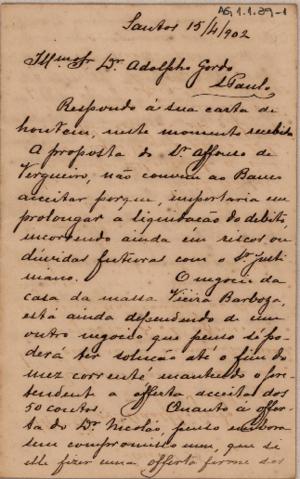 AG.1.1.29-1
Santos 15/4/902
Illmo Sr Dr. Adolpho Gordo
S. Paulo
Respondo á sua carta de
hontem, neste momento recebida
A proposta do Dr. Affonso de
Vergueiro, não convem ao Banco
acceitar porque, importaria em
prolongar a liquidação do debito,
incorrendo ainda em riscos ou
duvidas futuras com o Sr. Justi
niano. O negocio da
casa da massa Vieira Barboza,
está ainda dependendo de um
outro negocio que penso só po
derá ter solução até o fim do
mez corrente mantendo o pre
tendente a offerta acceita dos
50 contos. Quanto a offer
ta do Dr. Nicoláo, penso embora
sem compromisso meu, que si
elle fizer uma offerta firme dos